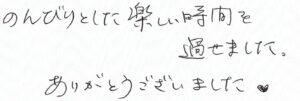 のんびりとした楽しい時間を
過せました。
ありがとうございました♥